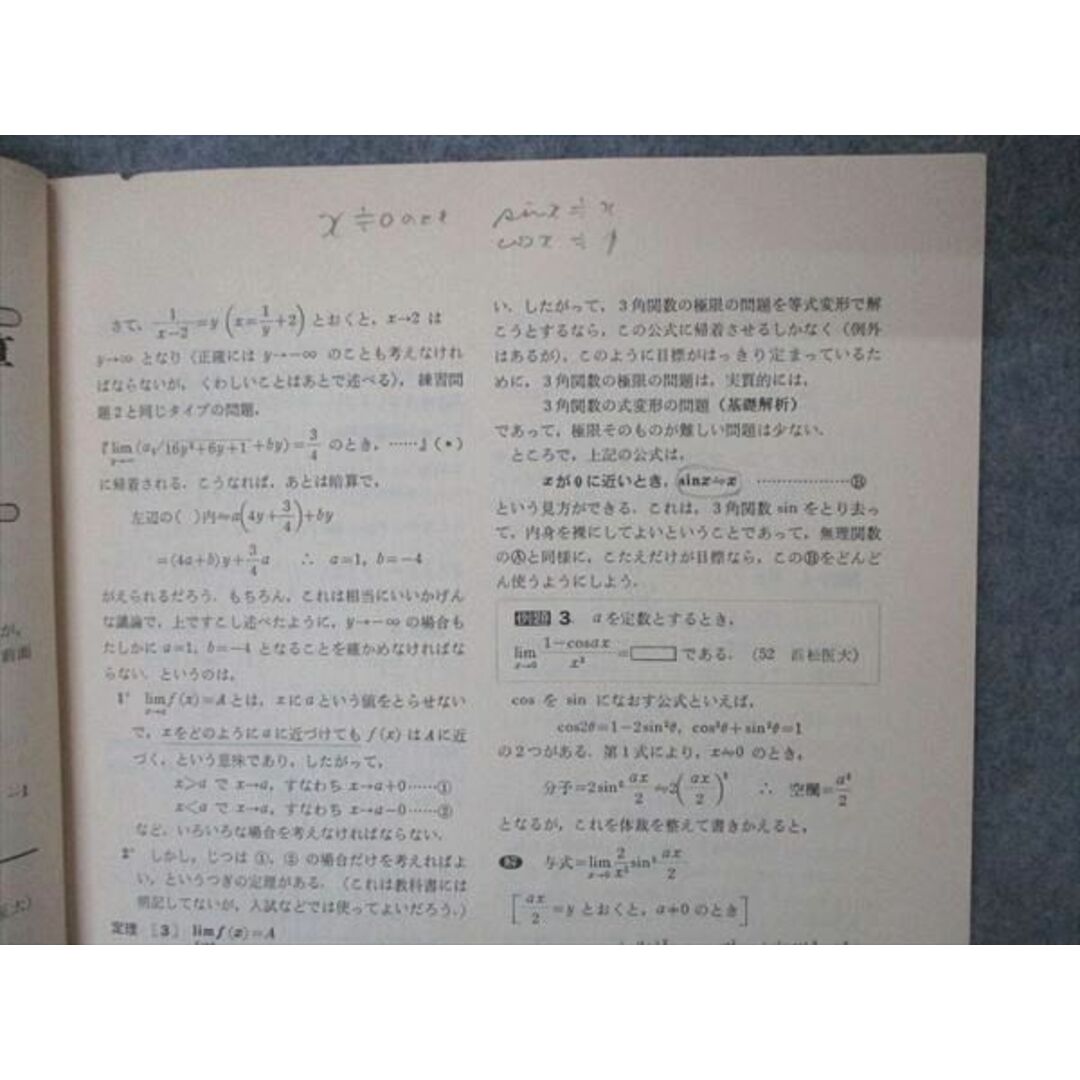 x≒0のとき sinx≒x
cosx≒1
さて，1/(x−2)=y (x=1/y+2) とおくと，x→2 は
y→∞ となり（正確には y→−∞ のことも考えなけれ
ばならないが，くわしいことはあとで述べる），練習問
題2と同じタイプの問題，
『lim(a√16y²+6y+1+by)=3/4 のとき，……』(*)
に帰着される．こうなれば，あとは暗算で，
左辺の( )内≒a(4y+3/4)+by
=(4a+b)y+3/4a ∴ a=1，b=−4
がえられるだろう．もちろん，これは相当にいいかげん
な議論で，上ですこし述べたように，y→−∞ の場合も
たしかに a=1，b=−4 となることを確かめなければな
らない．というのは，
1° lim f(x)=A とは，xにaという値をとらせない
x→a
で，xをどのようにaに近づけても f(x) はAに近
づく，という意味であり，したがって，
x>a で x→a，すなわち x→a+0……①
x<a で x→a，すなわち x→a−0……②
など，いろいろな場合を考えなければならない．
2° しかし，じつは ①，② の場合だけを考えればよ
い，というつぎの定理がある．（これは教科書には
明記してないが，入試などでは使ってよいだろう．）
定理〔3〕 lim f(x)=A
い．したがって，3角関数の極限の問題を等式変形で解
こうとするなら，この公式に帰着させるしかなく（例外
はあるが），このように目標がはっきり定まっているた
めに，3角関数の極限の問題は，実質的には，
3角関数の式変形の問題（基礎解析）
であって，極限そのものが難しい問題は少ない．
ところで，上記の公式は，
xが0に近いとき，sinx≒x ………………Ⓑ
という見方ができる．これは，3角関数 sin をとり去っ
て，内身を裸にしてよいということであって，無理関数
のⒶと同様に，こたえだけが目標なら，このⒷをどんど
ん使うようにしよう．
例題 3． aを定数とするとき，
lim (1−cosax)/x²= である．（52 浜松医大）
x→0
cos を sin になおす公式といえば，
cos2θ=1−2sin²θ，cos²θ+sin²θ=1
の2つがある．第1式により，x≒0 のとき，
分子=2sin² ax/2≒2(ax/2)² ∴ 空欄=a²/2
となるが，これを体裁を整えて書きかえると，
解 与式=lim 2/x² sin² ax/2
x→0
[ax/2=y とおくと，a≠0 のとき]